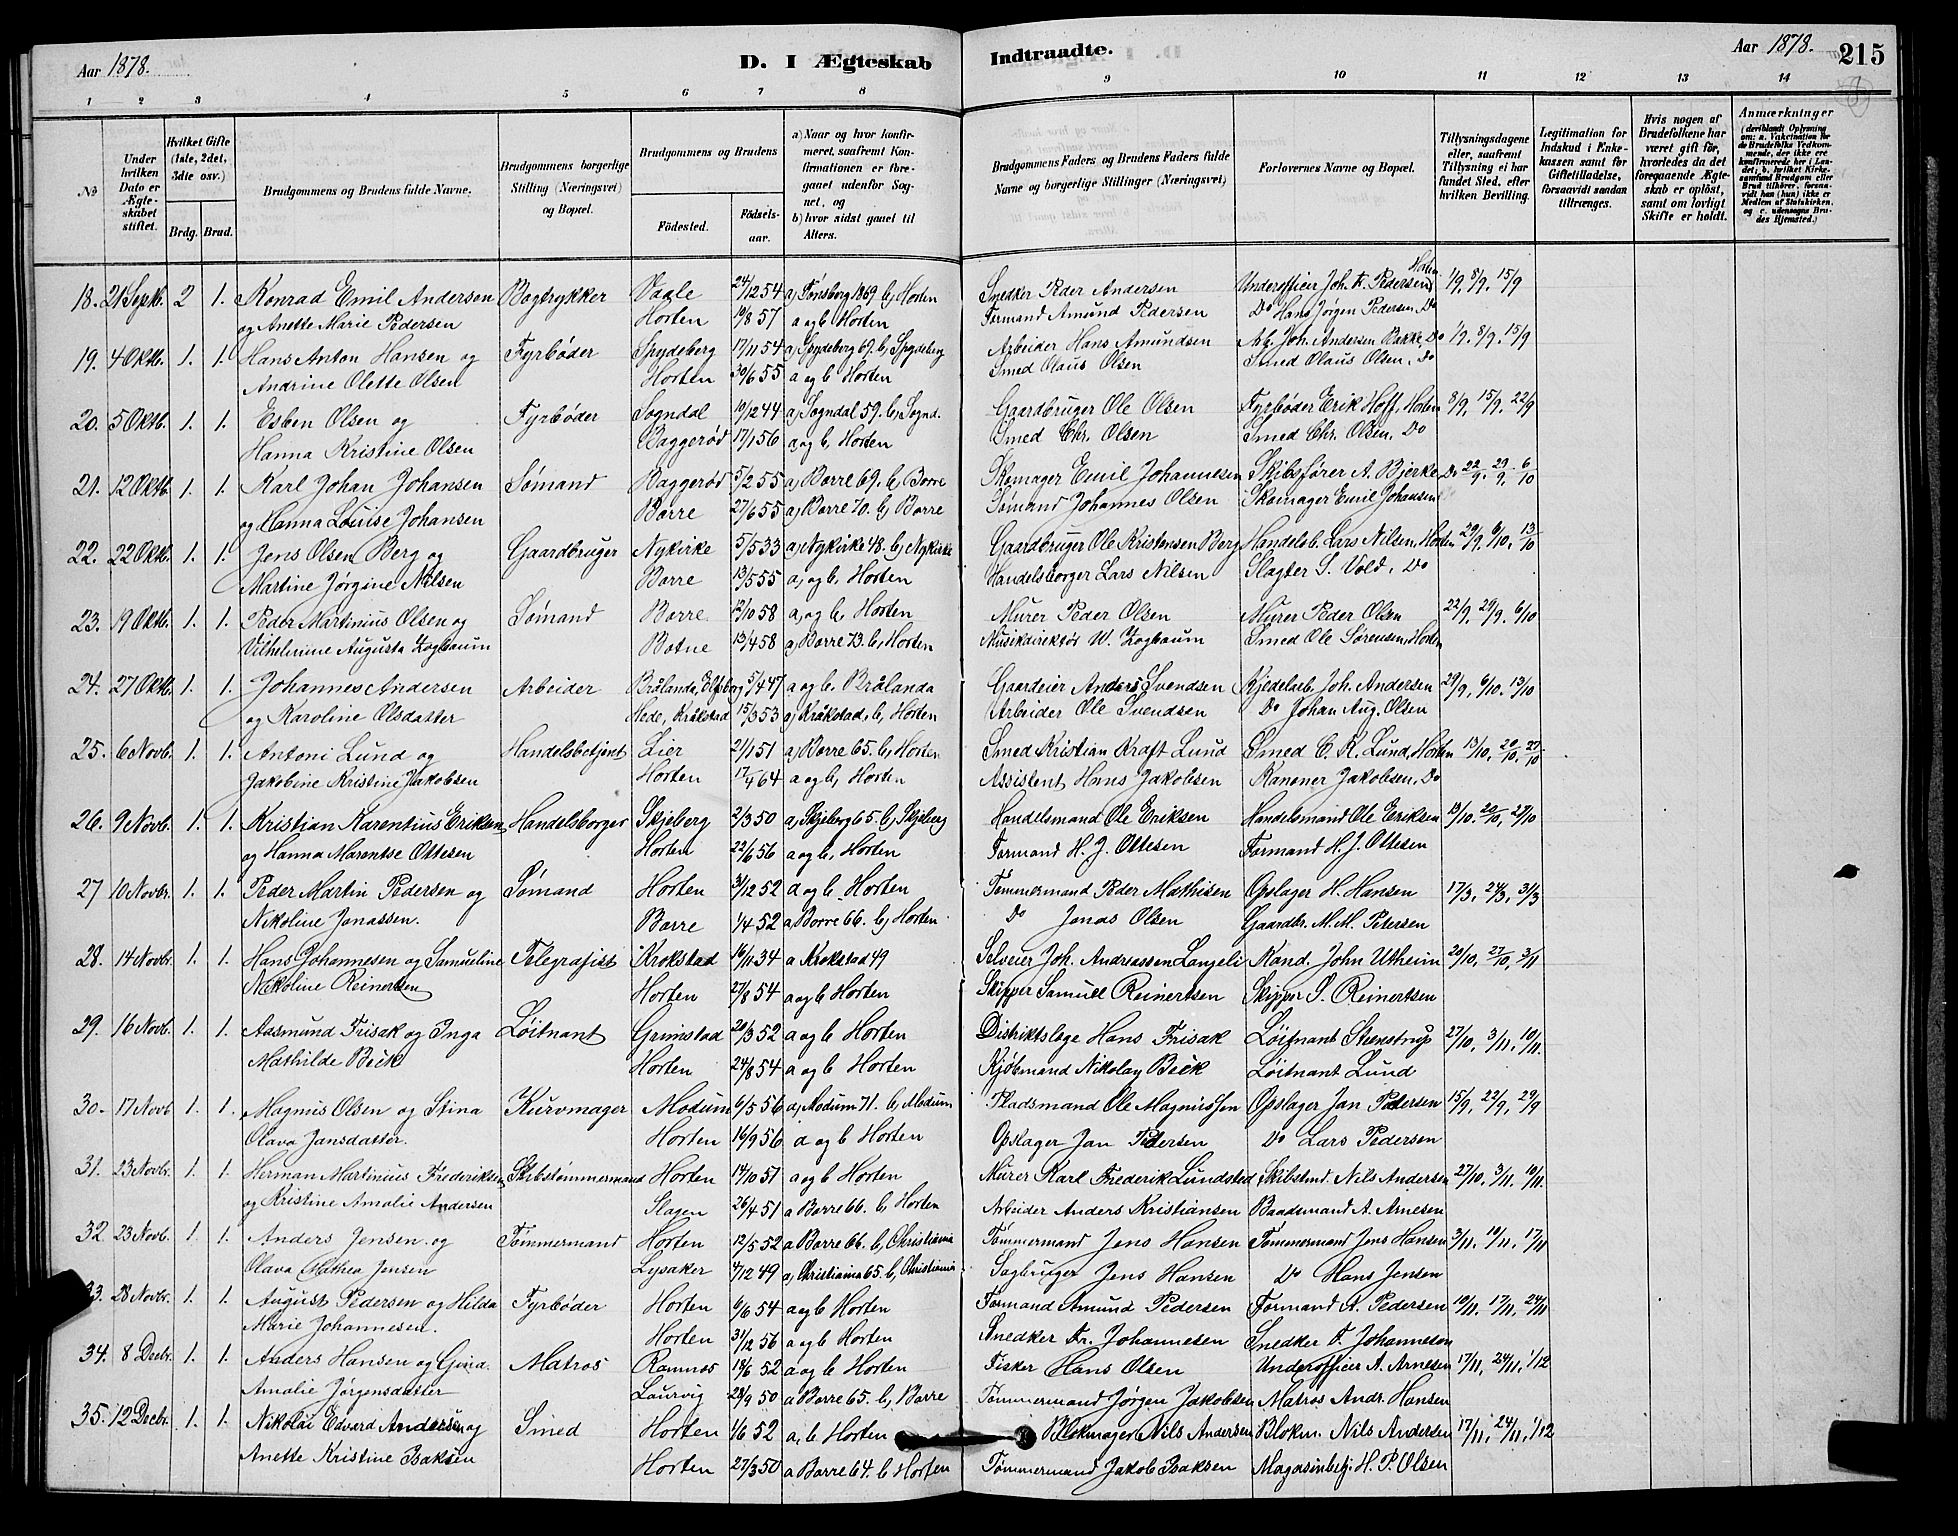 Aar 1878.
D. I Ægteskab
Indtraadte.
Aar 1878.
215
1 2 3 4 5 6 7 8
9 10 11 12 13 14
No
Under hvilken Dato er Ægteskabet stiftet.
Hvilket Gifte (1ste, 2det, 3die osv.)
Brdg. Brud.
Brudgommens og Brudens fulde Navne.
Brudgommens borgerlige Stilling (Næringsvei) og Bopæl.
Brudgommens og Brudens
Fødested.
Fødselsaar.
a) Naar og hvor konfirmeret, saafremt Konfirmationen er foregaaet udenfor Sognet, og
b) hvor sidst gaaet til Alters.
Brudgommens Faders og Brudens Faders fulde Navne og borgerlige Stillinger (Næringsvei)
Forlovernes Navne og Bopæl.
Tillysningsdagene eller, saafremt Tillysning ei har fundet Sted, efter hvilken Bevilling.
Legitimation for Indskud i Enkekassen samt for Giftetilladelse, forsaavidt saadan tiltrænges.
Hvis nogen af Brudefolkene har været gift, før, hvorledes da det foregaaende Ægteskab er opløst, samt om lovligt Skifte er holdt.
Anmærkninger
18. 21 Septb. 2 1. Konrad Emil Andersen Bogtrykker Vaale 24/12 54 a) Tønsberg 1869 b) Horten Snedker Peder Andersen Underofficier Joh. A. Pedersen, Horten 1/9, 8/9, 15/9
og Anette Marie Pedersen Horten 19/8 57 a og b Horten Formand Amund Pedersen Do Hans Jørgen Pedersen, Do
19. 4 Oktb. 1. 1. Hans Anton Hansen og Fyrbøder Spydeberg 17/11 54 a) Spydeberg 69. b) Spydeberg Arbeider Hans Amundsen Arb. Joh. Andersen Bakke, Do 1/9, 8/9, 15/9
Andrine Olette Olsen Horten 30/6 55 a og b Horten Smed Olaus Olsen Smed Olaus Olsen, Do
20. 5 Oktb. 1. 1. Esben Olsen og Fyrbøder Sogndal 19/12 44 a) Sogndal 59. b) Sognd. Gaardbruger Ole Olsen Fyrbøder Erik Hoff, Horten 8/9, 15/9, 22/9
Hanna Kristine Olsen Baggerød 17/1 56 a og b, Horten Smed Chr. Olsen Smed Chr. Olsen, Do
21. 12 Oktb. 1. 1. Karl Johan Johansen Sømand Baggerød 5/2 55 a) Borre 69. b) Borre Skomager Emil Johannesen Skibsfører A. Bjerke, Do 22/9, 29/9, 6/10
og Hanna Louise Johansen Borre 27/6 55 a) Borre 70. b) Borre Sømand Johannes Olsen Skomager Emil Johansen
22. 22 Oktb. 1. 1. Jens Olsen Berg og Gaardbruger Nykirke 5/5 33 a) Nykirke 48. b) Nykirke Gaardbruger Ole Kristensen Berg Handelsb. Lars Nilsen, Horten 29/9, 6/10, 13/10
Martine Jørgine Nilsen Borre 13/5 55 a, og b, Horten Handelsborger Lars Nilsen Slagter S. Vold, Do
23. 19 Oktb. 1. 1. Peder Martinius Olsen og Sømand Borre 12/10 58 a, og b, Horten Murer Peder Olsen Murer Peder Olsen 22/9, 29/9, 6/10
Vilhelmine Augusta Zogbaum Botne 13/4 58 a) Borre 73. b, Horten Musikdirektør W. Zogbaum Smed Ole Sørensen, Horten
24. 27 Oktb. 1. 1. Johannes Andersen Arbeider Brålanda, Elfsborg 5/4 47 a og b. Brålanda Gaardeier Anders Svendsen Kjedelarb. Joh. Andersen 29/9, 6/10, 13/10
og Karoline Olsdatter Hede, Kråkstad 15/3 53 a) Kråkstad, b, Horten Arbeider Ole Svendsen Do Johan Aug. Olsen
25. 6 Novb. 1. 1. Antoni Lund og Handelsbetjent Lier 21/1 51 a, Borre 65. b, Horten Smed Kristian Kraft Lund Smed C. K. Lund, Horten 13/10, 20/10, 27/10
Jakobine Kristine Jakobsen Horten 17/9 64 a og b, Horten Assistent Hans Jakobsen Kanoner Jakobsen, Do
26. 9 Novb. 1. 1. Kristian Karentius Eriksen Handelsborger Skjeberg 2/3 50 a, Skjeberg 65. b, Skjeberg Handelsmand Ole Eriksen Handelsmand Ole Eriksen 13/10, 20/10, 27/10
og Hanna Marentse Ottesen Horten 22/6 56 a og b, Horten Formand H. J. Ottesen Formand H. J. Ottesen
27 10 Novbr. 1. 1. Peder Martin Pedersen og Sømand Horten 31/12 52 a og b Horten Tømmermand Peder Mathisen Opslager H. Hansen 17/3, 24/3, 31/3
Nikoline Jonassen. Borre 1/4 52 a, Borre 66. b, Horten Do Jonas Olsen Gaardbr. M. M. Petersen
28. 14 Novbr. 1. 1. Hans Johannesen og Samueline Telegrafist Krokstad 16/11 34 a Krokstad 49 Selveier Joh. Andreassen Langeli Kand. John Utheim 20/10, 27/10, 3/11
Nikoline Reinertsen Horten 27/8 54 a og b Horten Skipper Samuel Reinertsen Skipper S. Reinertsen
29. 16 Novb. 1. 1. Aasmund Frisak og Inga Løitnant Grimstad 20/3 52 a og b Horten Distriktslæge Hans Frisak Løitnant Stenstrup 27/10, 3/11, 10/11.
Mathilde Beck Horten 24/8 54 a og b Horten Kjøbmand Nikolay Beck Løitnant Lund
30. 17 Novb 1. 1. Magnus Olsen og Stina Kurvmager Modum 6/5 56 a) Modum 71. b, Modum Pladsmand Ole Magnussen Opslager Jan Pedersen 15/9, 22/9, 29/9
Olava Jansdatter. Horten 16/9 56 a og b Horten Opslager Jan Pedersen Do Lars Pedersen
31. 23 Novbr. 1. 1. Herman Martinius Frederiksen Skibstømmermand Horten 14/10 51 a og b Horten Murer Karl Frederik Lundsted Skibstmd. Nils Andersen 27/10, 3/11, 10/11.
og Kristine Amalie Andersen Slagen 26/4 51 a Borre 66. b, Horten Arbeider Anders Kristiansen Baadsmand A. Arnesen
32 23 Novb. 1. 1. Anders Jensen og Tømmermand Horten 12/5 52 a Borre 66. b, Christiania Tømmermand Jens Hansen Tømmermand Jens Hansen 3/11, 10/11, 17/11
Olava Mathea Jensen Lysaker 4/12 49 a, Christiania 65. b, Christiania Sagbruger Jens Hansen Do Hans Jensen
33. 28 Novbr. 1. 1. August Pedersen og Hilda Fyrbøder Horten 6/6 54 a og b Horten Formand Amund Pedersen Formand A. Pedersen 10/11, 17/11, 24/11
Marie Johannesen. Horten 31/12 56 a og b Horten Snedker Fr. Johannesen Snedker F. Johannesen
34. 8 Decbr. 1. 1. Anders Hansen og Gina Matros Ramnes 18/6 52 a og b Horten Fisker Hans Olsen Underofficier A. Arnesen 17/11, 24/11, 1/12
Amalie Jørgensdatter Laurvig 28/9 50 a Borre 65. b, Borre Tømmermand Jørgen Jakobsen Matros Andr. Hansen
35. 12 Decbr. 1. 1. Nikolai Edvard Andersen og Smed Horten 1/6 52 a, b Horten Blokmager Nils Andersen Blokm. Nils Andersen 17/11, 24/11, 1/12
Anette Kristine Baksen Horten 27/3 50 a Borre 64. b Horten Tømmermand Jakob Baksen Magasinbetj. H. P. Olsen